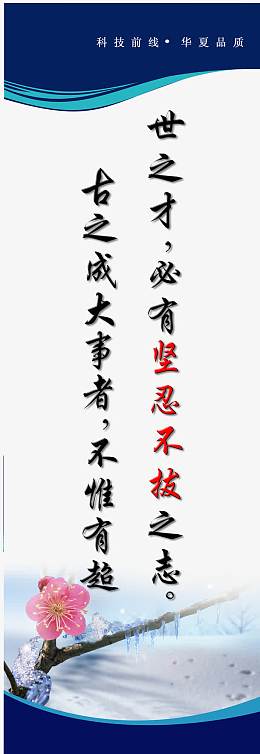 科技前线•华夏品质
古之成大事者，不惟有超
世之才，必有坚忍不拔之志。